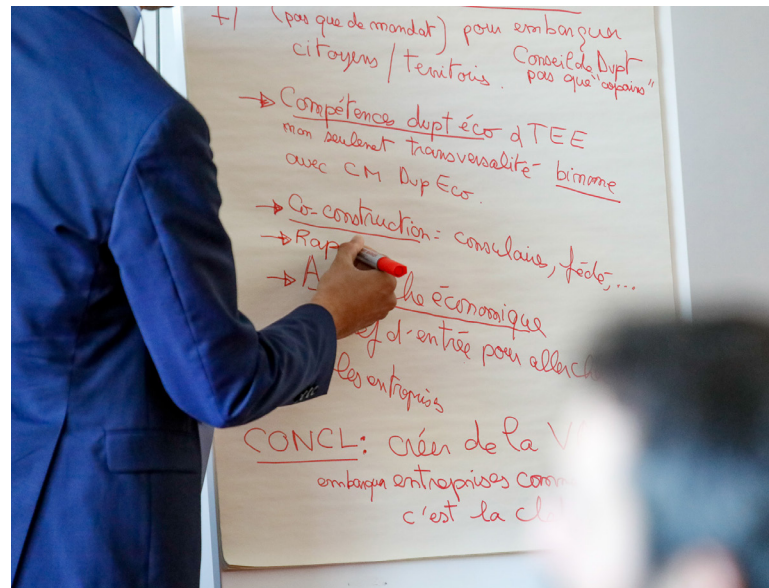 +/ (pas que de mandat) pour embarquer
citoyens / territoires. Conseil de Dvpt
pas que "copains"
→ Compétences dvpt éco d TEE
non seulement transversalité binome
avec CM Dvp Eco.
→ Co-construction = consulaires, fédé,...
→ Rap
→ A he économique
d'entrée pour aller ch
les entreprises
CONCL : créer de la V
embarquer entreprises com
c'est la cl